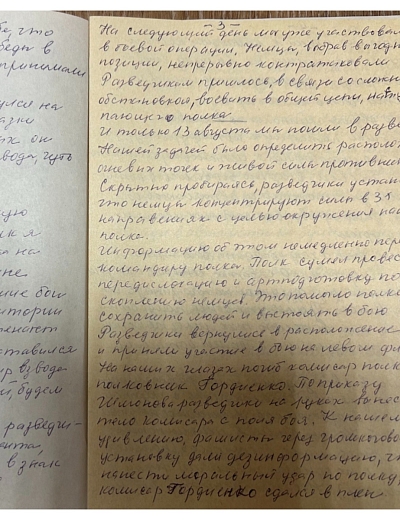 бе, что
беды в
принимали
нулся на
азки
х он
вода, чуть
ую
к я
а на
не
ние бои
итории
тавился
ир взвода
й, будем
разведчи-
в знак
- 3 -
На следующий день мы уже участвовали
в боевой операции. Немцы, выбрав выгодн
позиции, непрерывно контратаковали.
Разведчикам пришлось, в связи со сложно
обстановкой, воевать в общей цепи, насту-
пающего полка.
И только 13 августа мы пошли в разве
Нашей задачей было определить располож
огневых точек и живой силы противник
Скрытно пробираясь, разведчики устан
что немцы концентрируют силы в 3х
направлениях с целью окружения наш
полка.
Информацию об этом немедленно пере
командиру полка. Полк сумел провес
передислокацию и артподготовку по
скоплению немцев. Это помогло полку
сохранить людей и выстоять в бою
Разведчики вернулись в расположение
и приняли участие в бою на левом фла
На наших глазах погиб комиссар полк
полковник Гордиенко. По приказу
разведчики на руках вынес
тело комиссара с поля боя. К нашем
удивлению, фашисты через громкогово
установку дали дезинформацию, чт
нанести моральный удар по полку,
комиссар Гордиенко сдался в плен